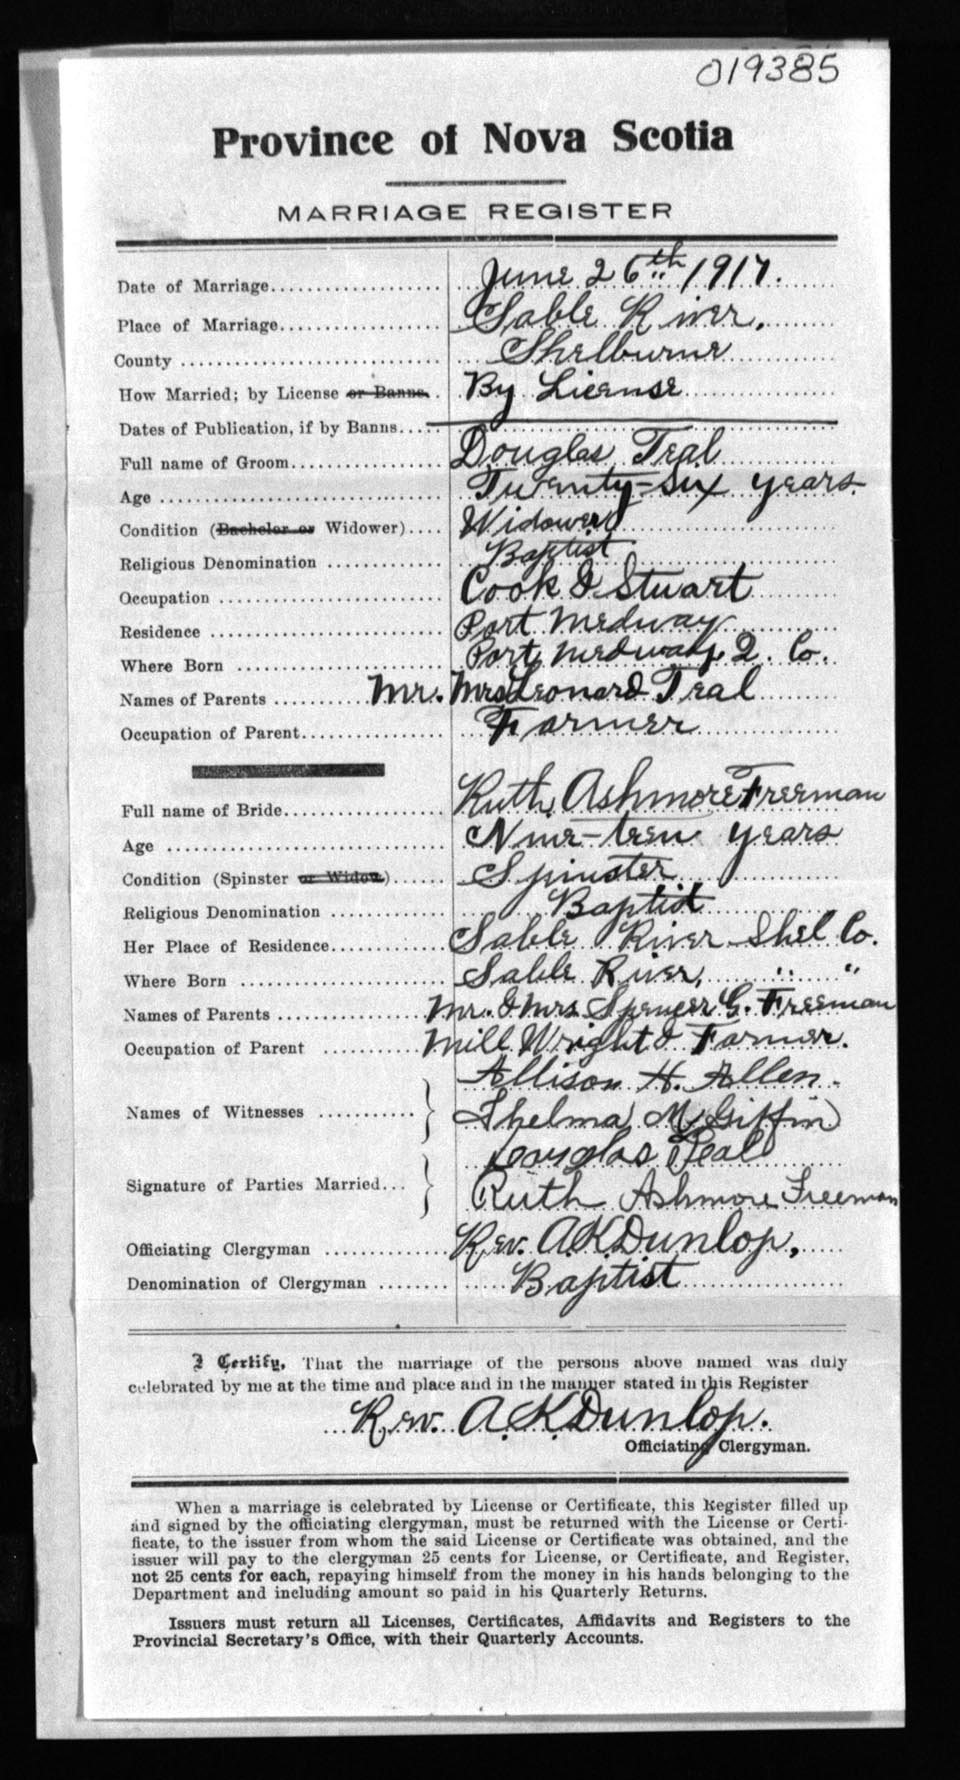 019385
Province of Nova Scotia
MARRIAGE REGISTER
Date of Marriage.................... June 26th 1917.
Place of Marriage.................... Sable River.
County .................... Shelburne
How Married; by License or Banns.. By License
Dates of Publication, if by Banns.....
Full name of Groom.................... Douglas Teal
Age .................... Twenty-six years.
Condition (Bachelor or Widower).... Widower
Religious Denomination .............. Baptist
Occupation .................... Cook & Stuart
Residence .................... Port Medway
Where Born .................... Port Medway. Q. Co.
Names of Parents ............ Mr. Mrs Leonard Teal
Occupation of Parent................. Farmer
Full name of Bride.................... Ruth Ashmore Freeman
Age .................... Nine-teen years
Condition (Spinster or Widow)...... Spinster
Religious Denomination .............. Baptist
Her Place of Residence.............. Sable River Shel Co.
Where Born .................... Sable River, " "
Names of Parents .................... Mr. & Mrs Spencer G. Freeman
Occupation of Parent ............ Mill Wright & Farmer.
Allison H. Allen.
Names of Witnesses ............ } Thelma M Giffin
Douglas Teal
Signature of Parties Married... } Ruth Ashmore Freeman
Officiating Clergyman .............. Rev. A.K. Dunlop,
Denomination of Clergyman ........ Baptist
I Certify, That the marriage of the persons above named was duly
celebrated by me at the time and place and in the manner stated in this Register
Rev. A. K. Dunlop.
Officiating Clergyman.
When a marriage is celebrated by License or Certificate, this Register filled up
and signed by the officiating clergyman, must be returned with the License or Certi-
ficate, to the issuer from whom the said License or Certificate was obtained, and the
issuer will pay to the clergyman 25 cents for License, or Certificate, and Register,
not 25 cents for each, repaying himself from the money in his hands belonging to the
Department and including amount so paid in his Quarterly Returns.
Issuers must return all Licenses, Certificates, Affidavits and Registers to the
Provincial Secretary's Office, with their Quarterly Accounts.